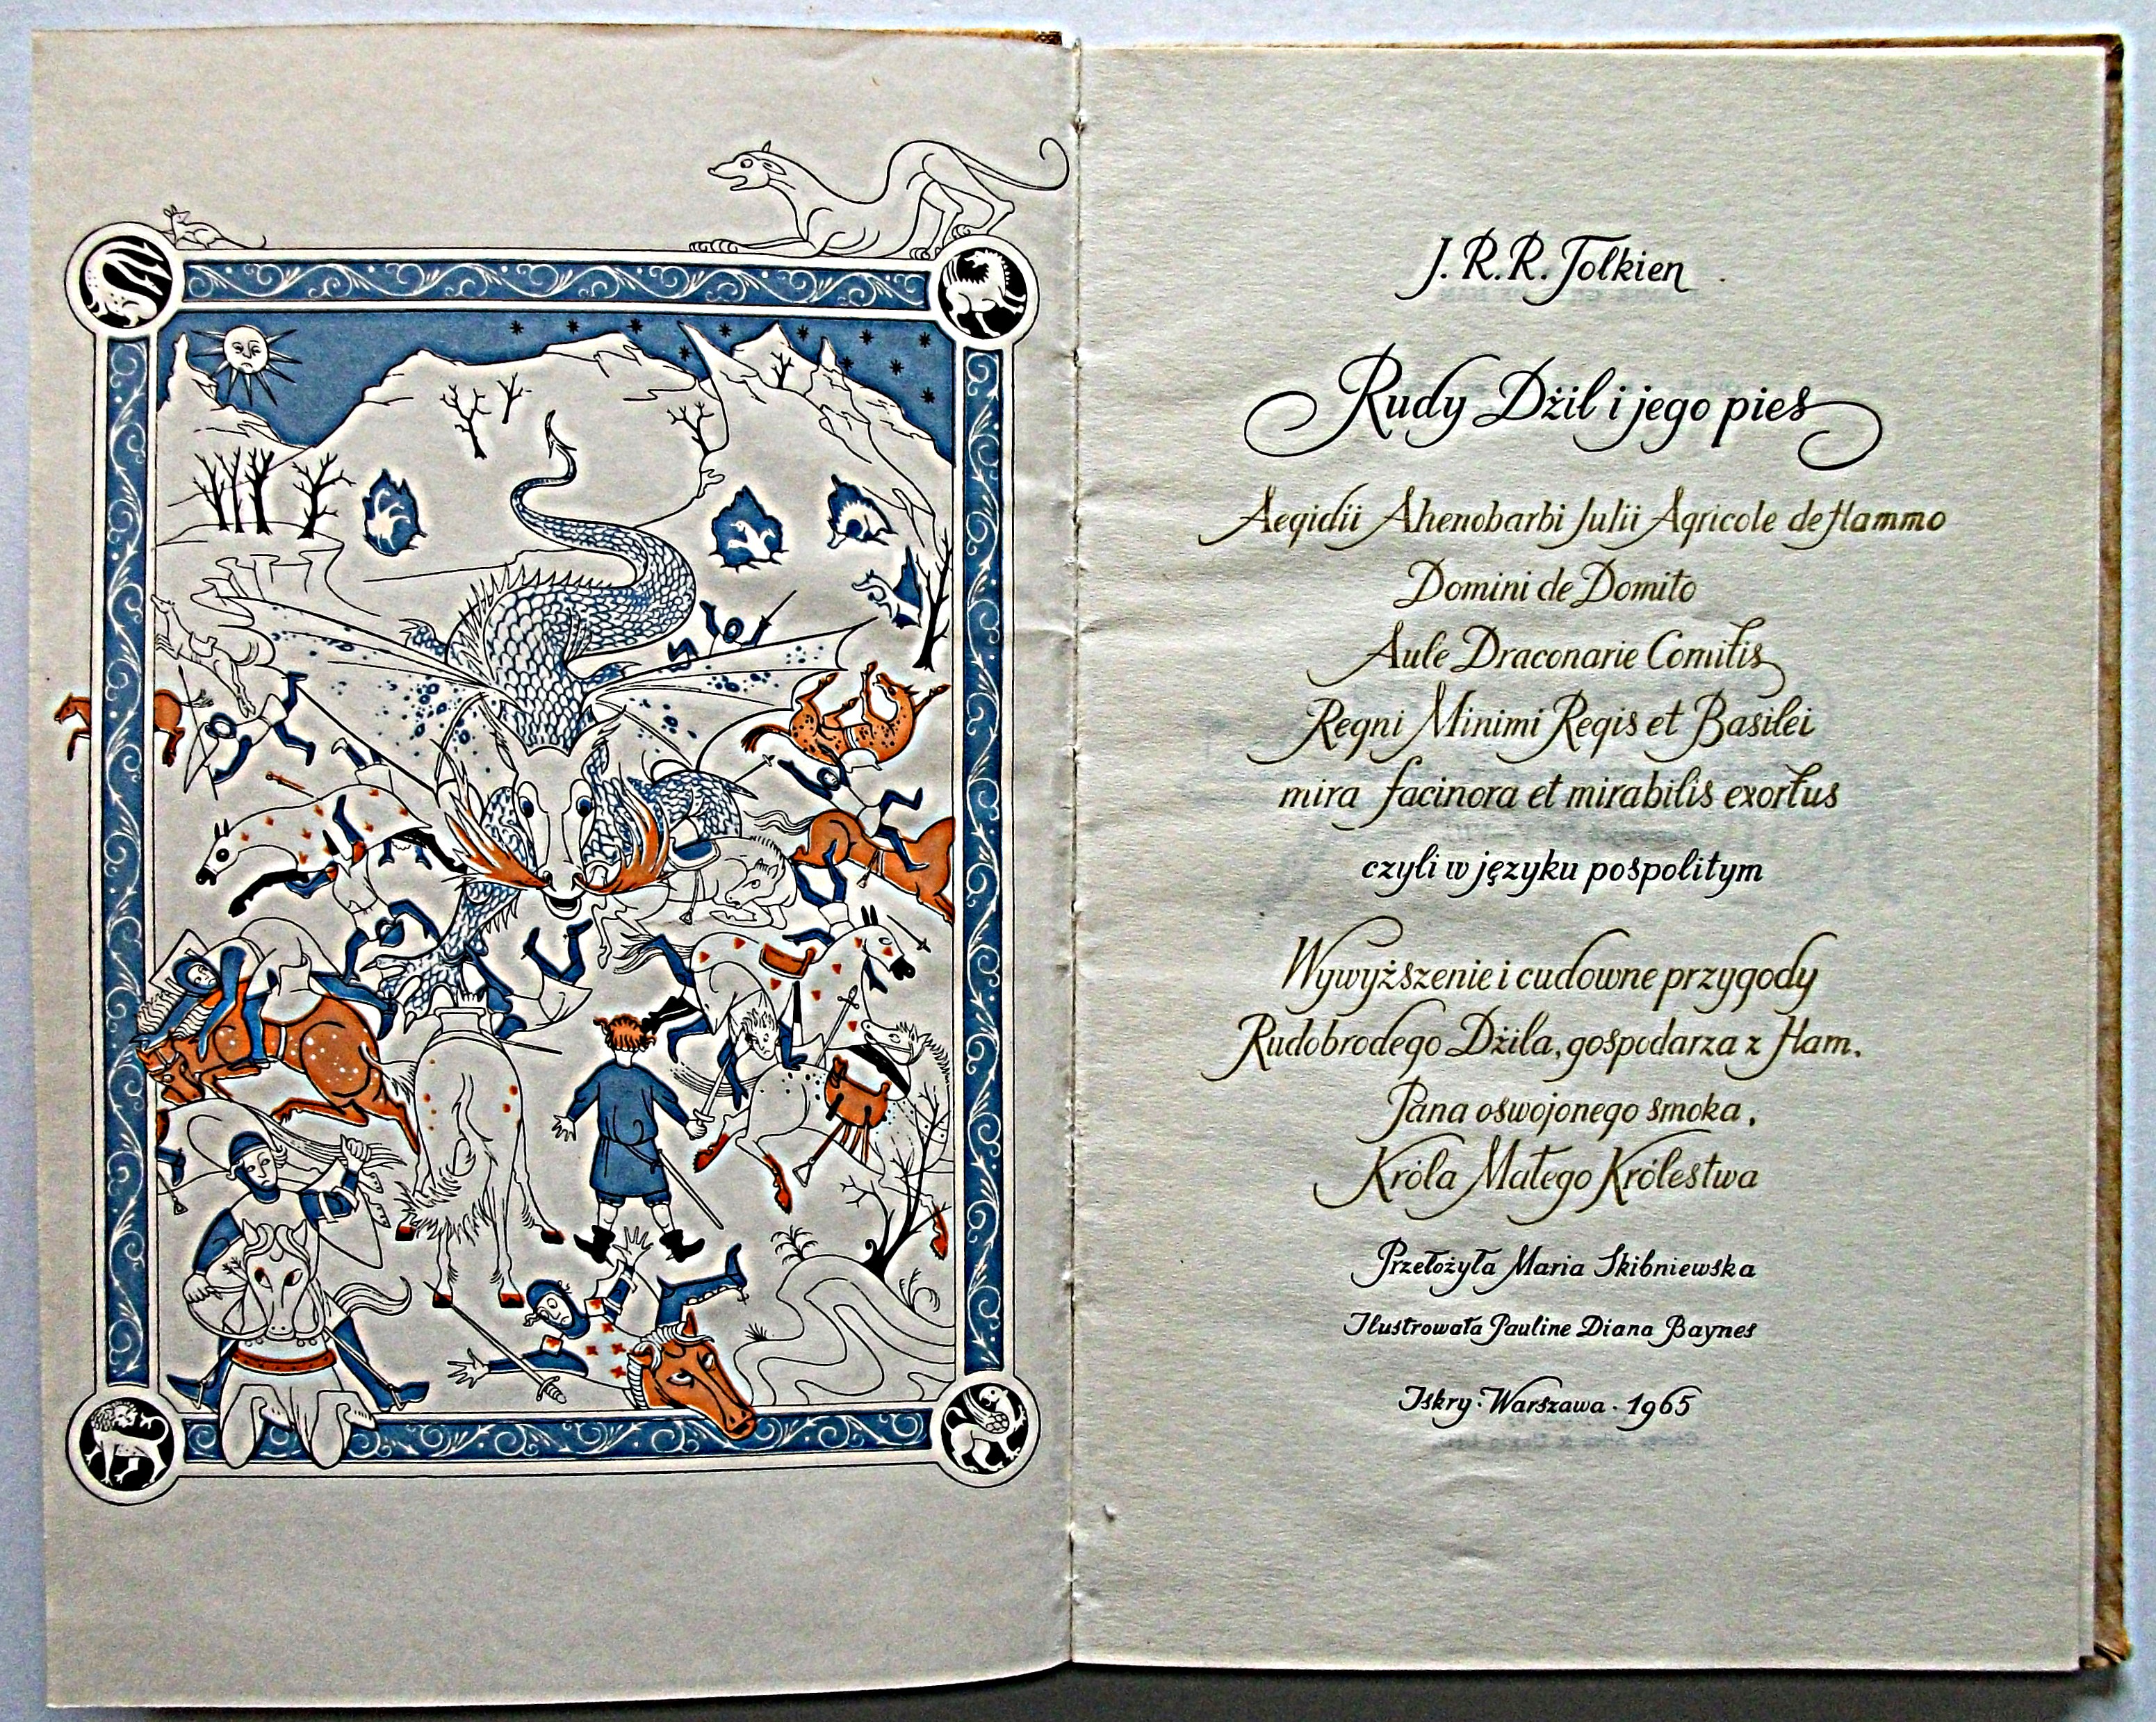 J. R. R. Tolkien
Rudy Dżil i jego pies
Aegidii Ahenobarbi Julii Agricole de Hammo
Domini de Domito
Aule Draconarie Comitis
Regni Minimi Regis et Basilei
mira facinora et mirabilis exortus
czyli w języku pospolitym
Wywyższenie i cudowne przygody
Rudobrodego Dżila, gospodarza z Ham,
Pana oswojonego smoka,
Króla Małego Królestwa
Przełożyła Maria Skibniewska
Ilustrowała Pauline Diana Baynes
Iskry · Warszawa · 1965